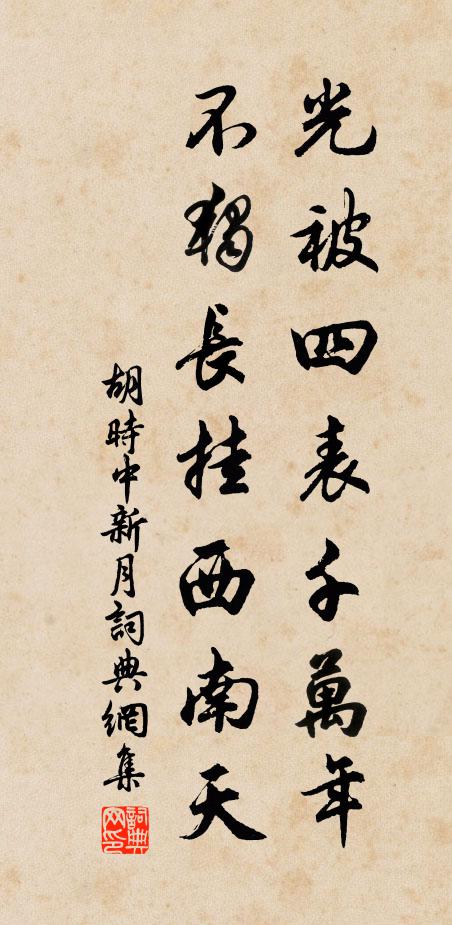 光被四表千萬年
不獨長挂西南天
胡時中新月詞典網集
詞典網印